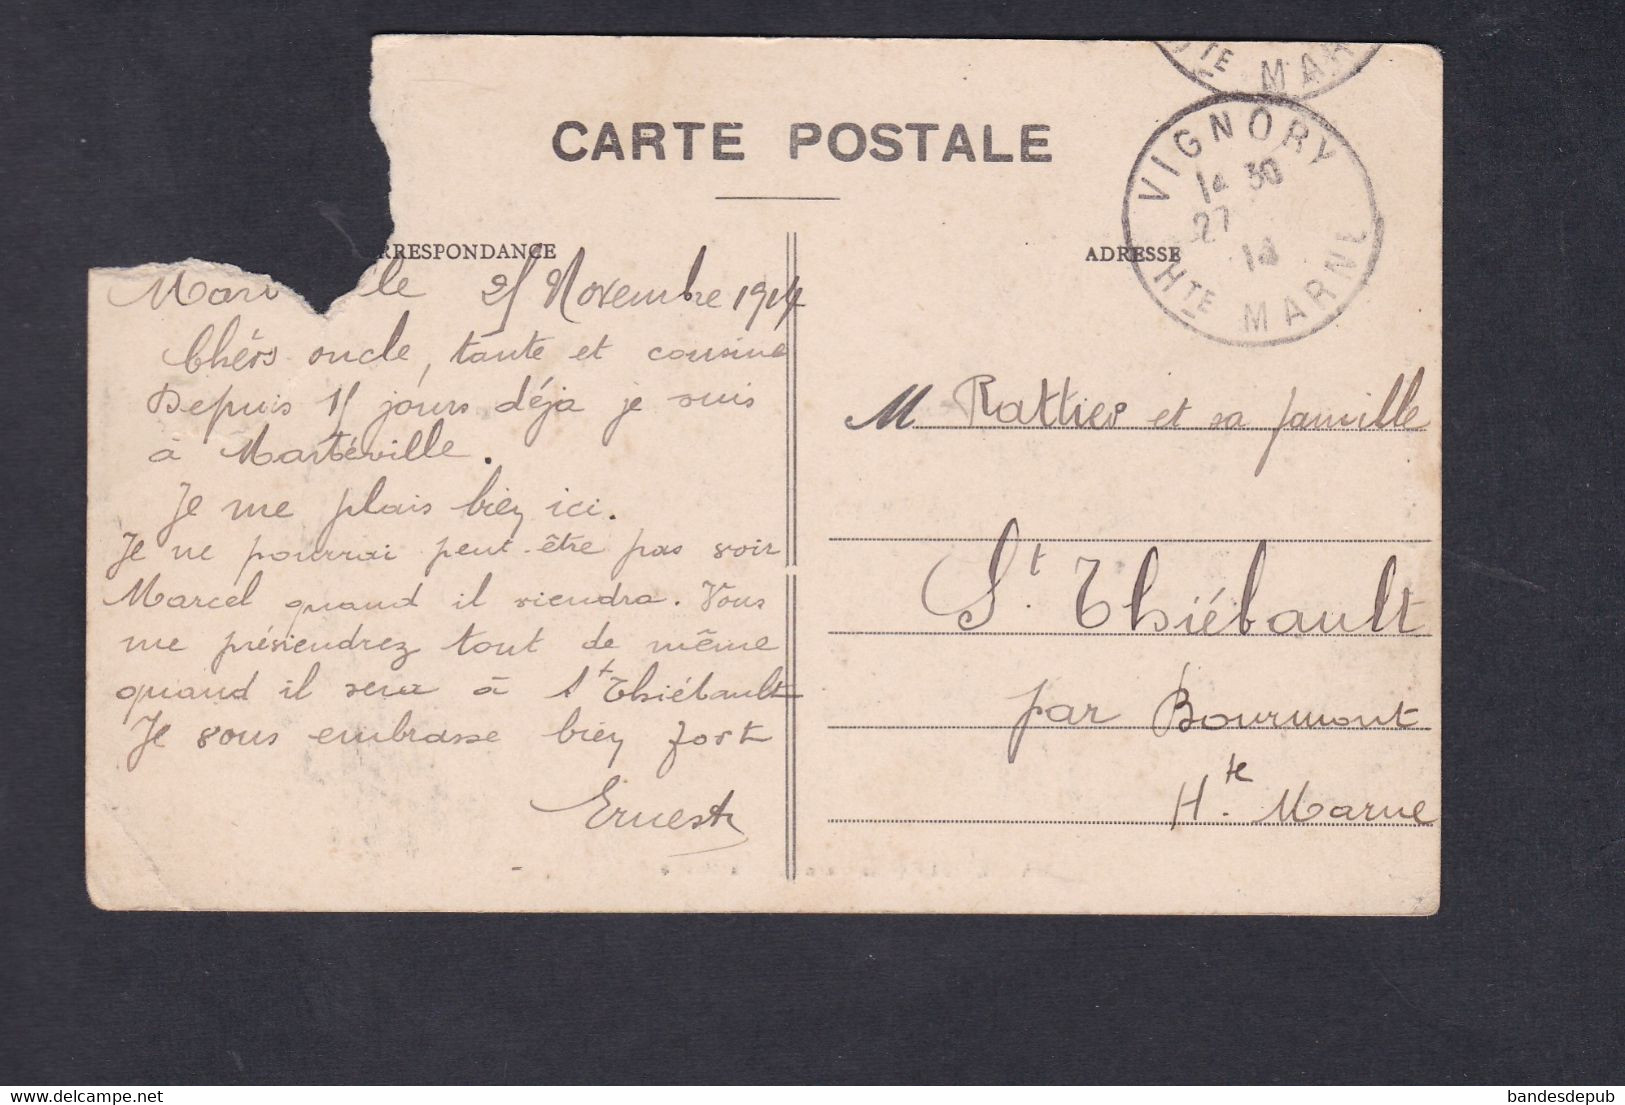 TE MAR
CARTE POSTALE
VIGNORY
30
27
14
HTE MARNE
RRESPONDANCE
ADRESSE
Mar le 25 Novembre 1914
Chers oncle, tante et cousine
Depuis 15 jours déja je suis
à Martéville.
Je me plais bien ici.
Je ne pourrai peut-être pas voir
Marcel quand il viendra. Vous
me préviendrez tout de même
quand il sera à St Thiébault
Je vous embrasse bien fort
Ernest
M Rattier et sa famille
St. Thiébault
par Bourmont
Hte. Marne
delcampe.net
bandesdepub